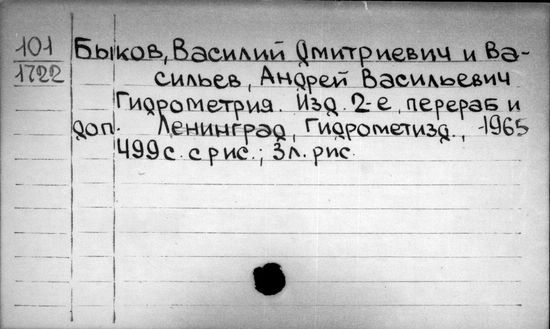 101
1722
Быков, Василий Дмитриевич и Ва-
сильев, Андрей Васильевич
Гидрометрия. Изд. 2-е, перераб и
доп. Ленинград, Гидрометизд., 1965
499с. с рис.; 3л. рис.